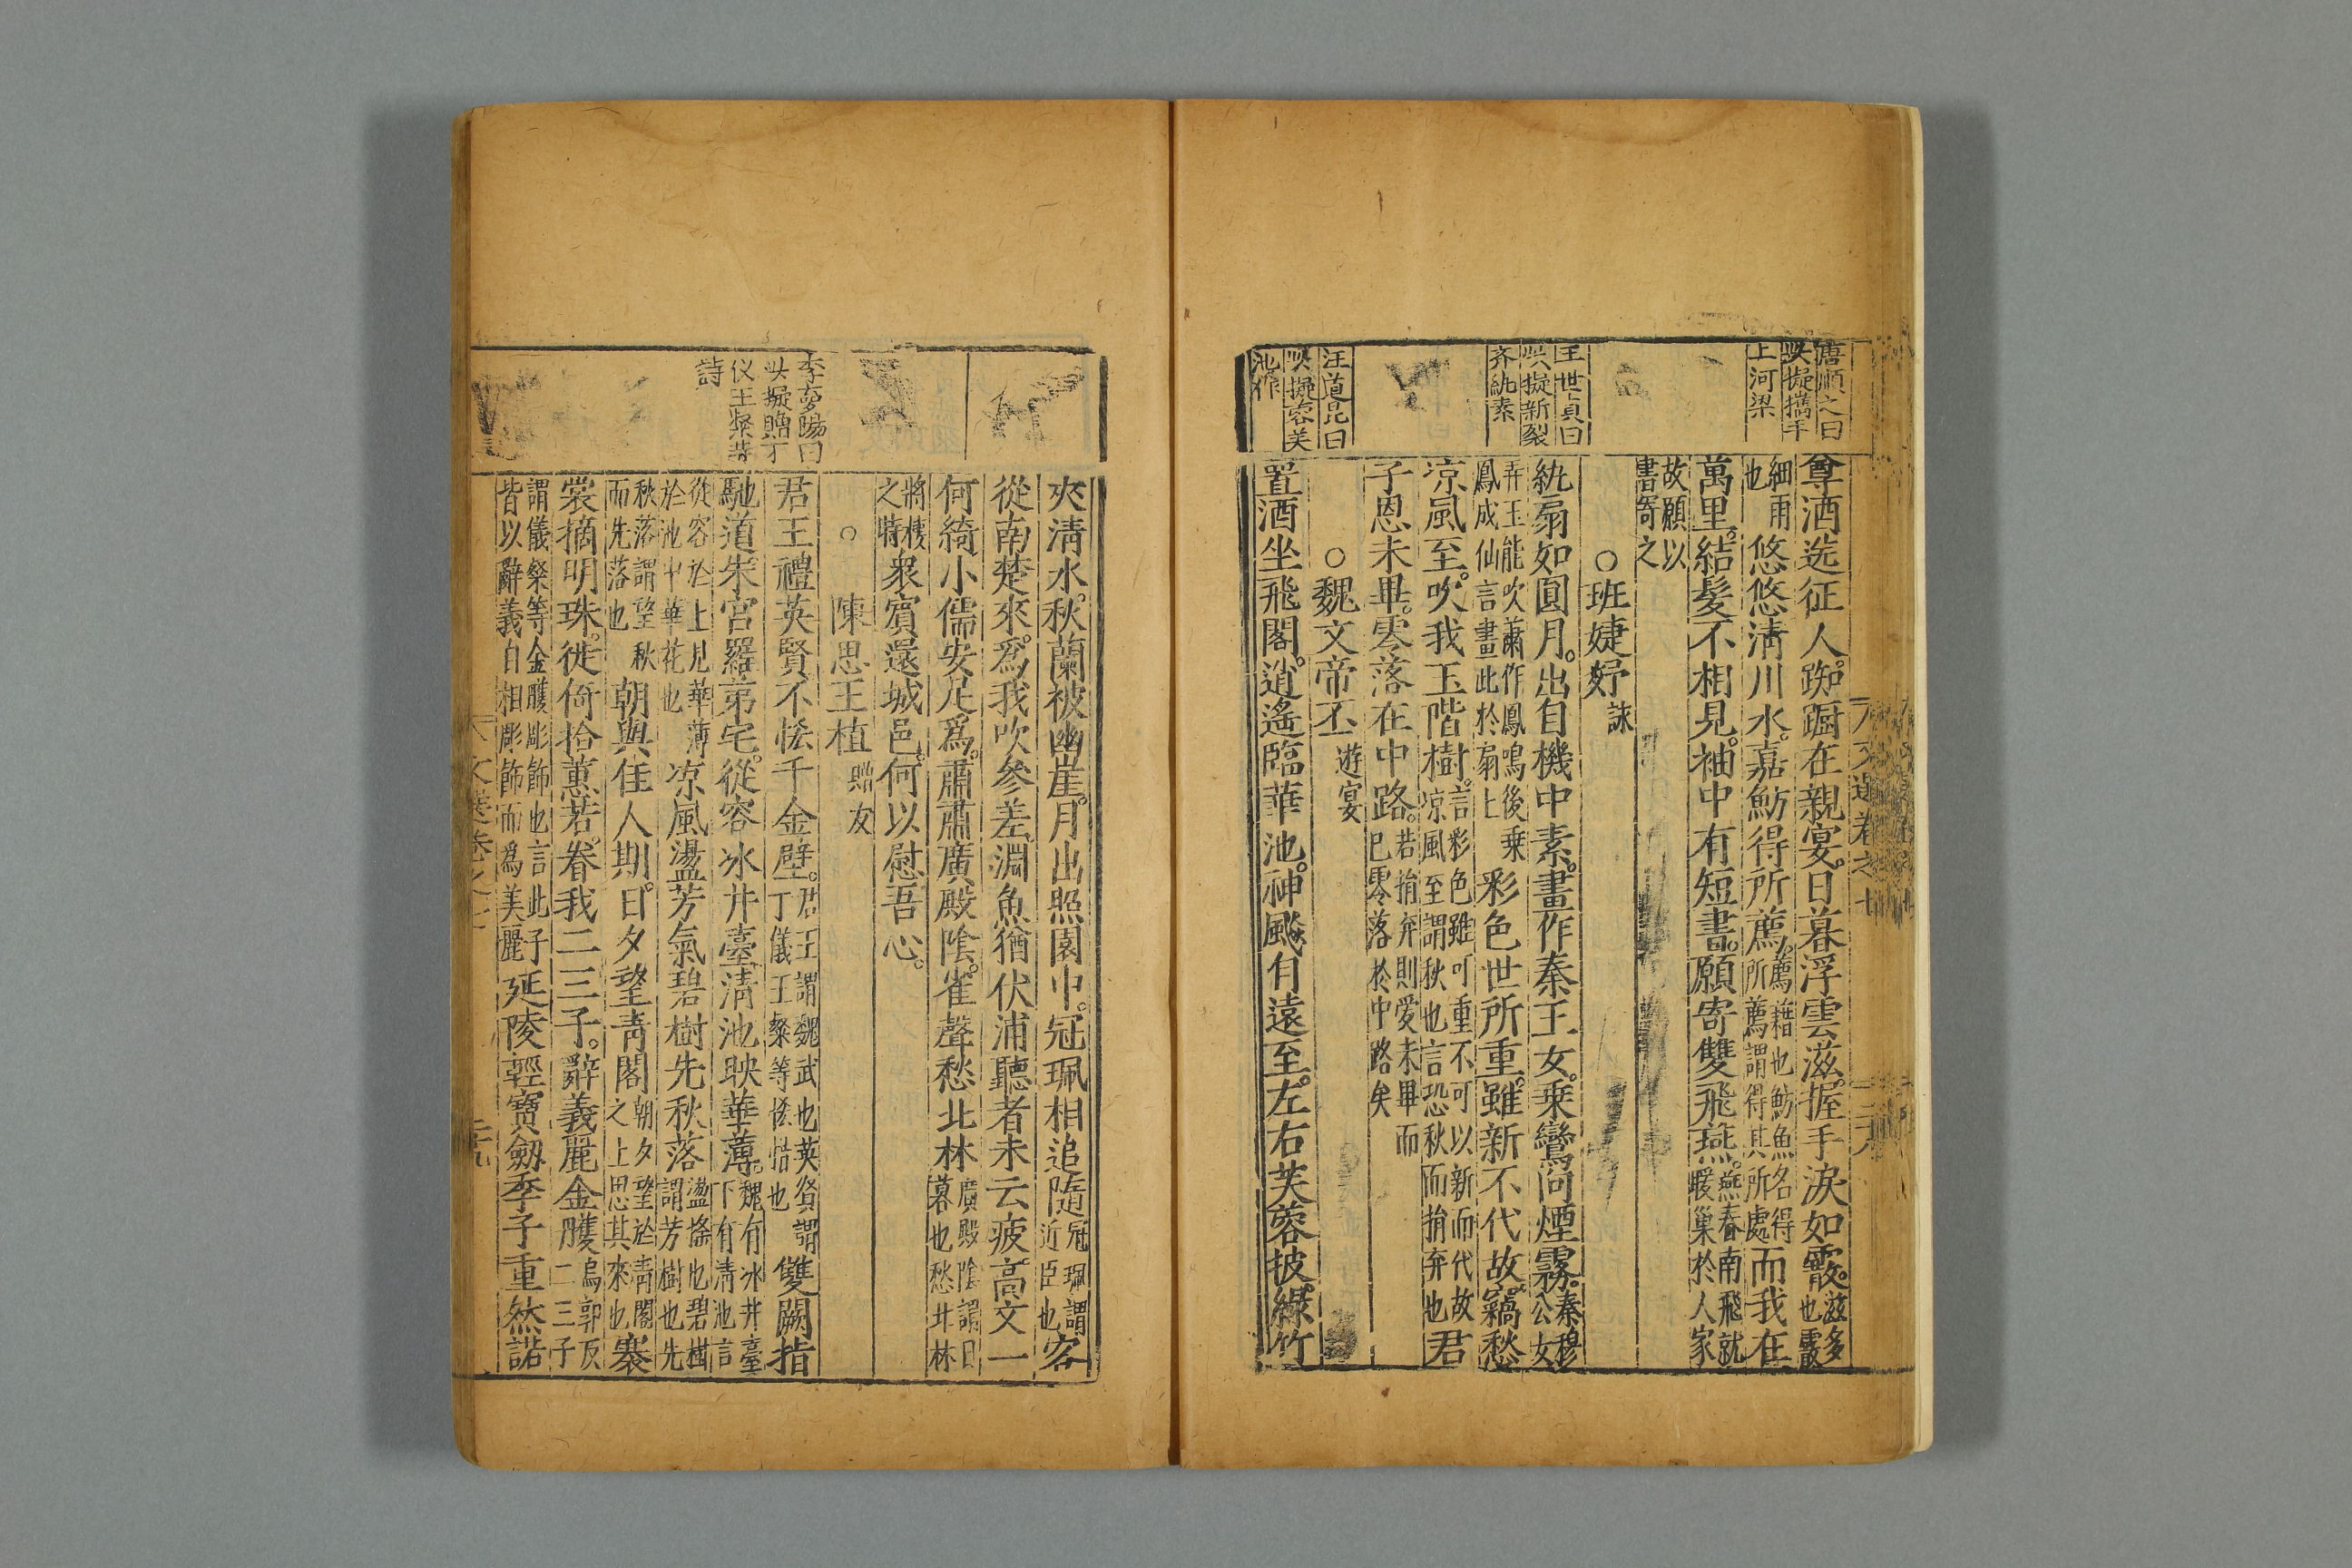 唐順之曰
此擬攜手
上河梁
王世貞曰
此擬新裂
齐紈素
汪道昆曰
此擬芙蓉
池作
尊酒送征人。踟蹰在親宴。日暮浮雲滋。握手淚如霰。滋多也霰
細雨也悠悠清川水。嘉魴得所薦。薦藉也魴魚名得所薦謂得其所處而我在
萬里。結髮不相見。袖中有短書。願寄雙飛燕。燕春南飛就暖巢於人家
故願以書寄之
○班婕妤詠
紈扇如圓月。出自機中素。畫作秦王女。乘鸞向煙霧。秦穆公女
弄玉能吹蕭作鳳鳴後乘鳳成仙言畫此於扇上彩色世所重。雖新不代故。竊愁
凉風至。吹我玉階樹。言彩色雖可重不可以新而代故凉風至謂秋也言恐秋而捐弃也君
子恩未畢。零落在中路。若捐弃則愛未畢而已零落於中路矣
○魏文帝丕遊宴
置酒坐飛閣。逍遙臨華池。神飈自遠至。左右芙蓉披。綠竹
文選卷之七
李夢陽曰
此擬贈丁
仪王粲等
詩
夾清水。秋蘭被幽崖。月出照園中。冠珮相追隨冠珮謂近臣也客
從南楚來。爲我吹參差。淵魚猶伏浦聽者未云疲。高文一
何綺小儒安足爲。肅肅廣殿陰。雀聲愁北林廣殿陰謂日暮也愁北林
將棲之時衆賓還城邑。何以慰吾心。
○陳思王植贈友
君王禮英賢不恡千金壁。君王謂魏武也英賢謂丁儀王粲等恡惜也雙闕指
馳道朱宮羅第宅。從容冰井臺清池映華薄。魏有冰井臺下有清池言
從容於上見華薄於池中華花也凉風盪芳氣碧樹先秋落盪滌也碧樹謂芳樹也先
秋落謂望秋而先落也朝與佳人期。日夕望靑閣朝夕望於靑閣之上思其來也褰
裳摘明珠。徙倚拾蕙若。眷我二三子。辭義麗金雘烏郭反二三子
謂儀粲等金雘彫飾也言此子皆以辭義自相彫飾而爲美麗延陵輕寶劔季子重然諾
文選卷之七